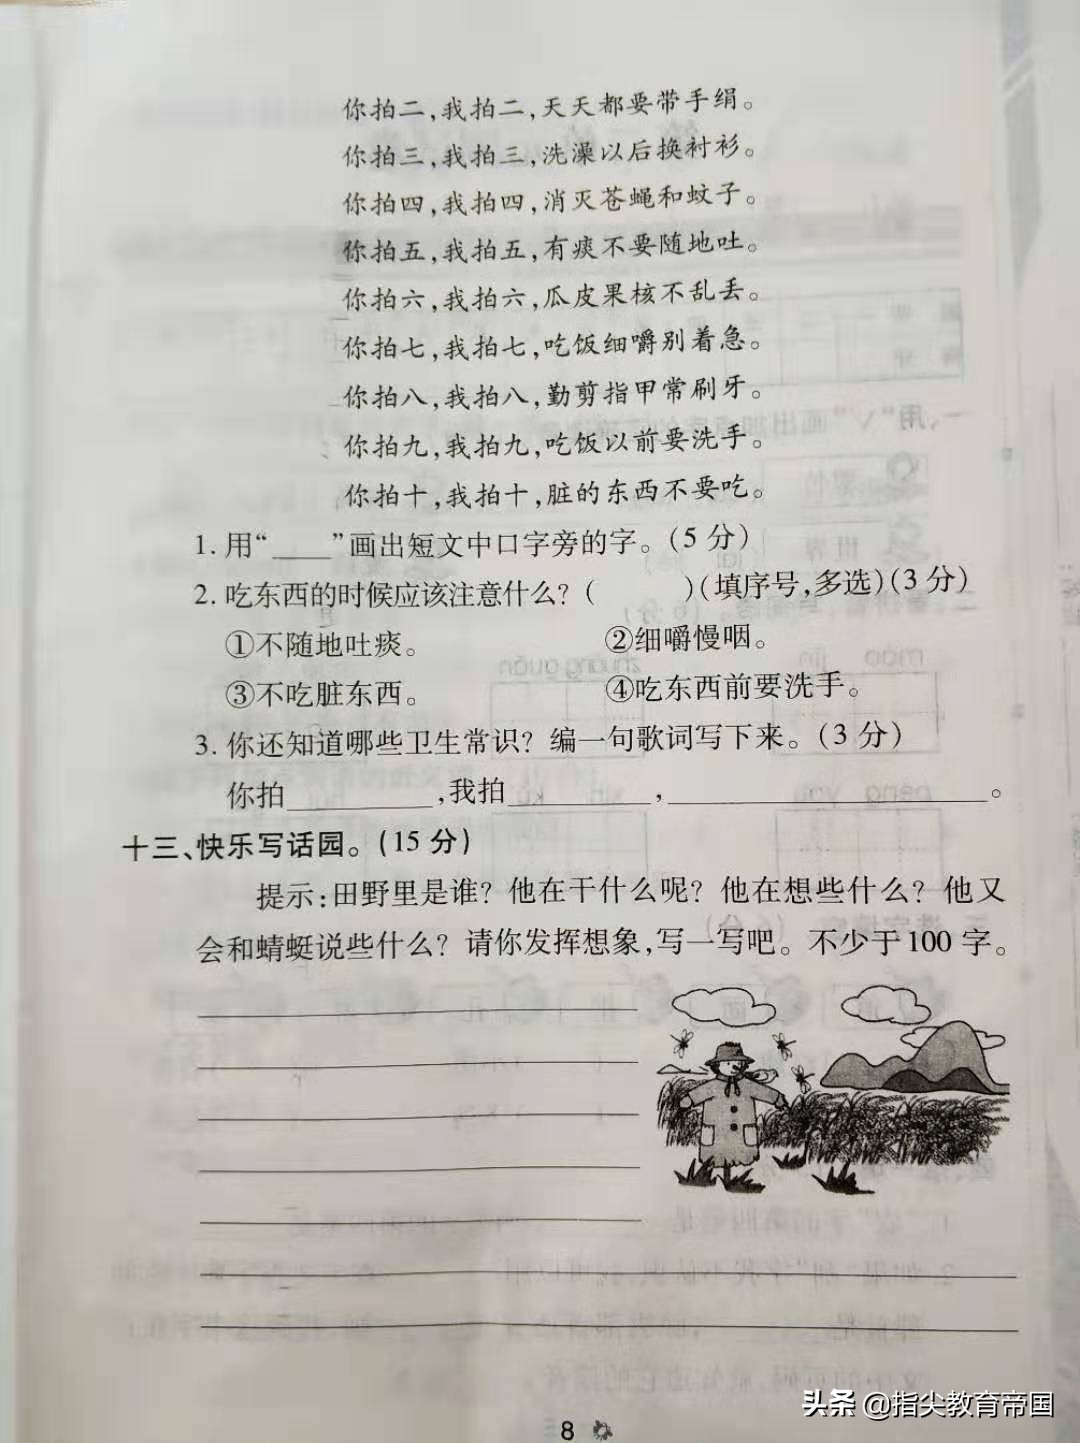 你拍二,我拍二,天天都要带手绢。
你拍三,我拍三,洗澡以后换衬衫。
你拍四,我拍四,消灭苍蝇和蚊子。
你拍五,我拍五,有痰不要随地吐。
你拍六,我拍六,瓜皮果核不乱丢。
你拍七,我拍七,吃饭细嚼别着急。
你拍八,我拍八,勤剪指甲常刷牙。
你拍九,我拍九,吃饭以前要洗手。
你拍十,我拍十,脏的东西不要吃。
1. 用“____”画出短文中口字旁的字。(5 分)
2. 吃东西的时候应该注意什么?( )(填序号,多选)(3 分)
①不随地吐痰。 ②细嚼慢咽。
③不吃脏东西。 ④吃东西前要洗手。
3. 你还知道哪些卫生常识? 编一句歌词写下来。(3 分)
你拍__________,我拍__________,______________________。
十三、快乐写话园。(15 分)
提示:田野里是谁? 他在干什么呢? 他在想些什么? 他又
会和蜻蜓说些什么? 请你发挥想象,写一写吧。不少于 100 字。
8
头条 @指尖教育帝国